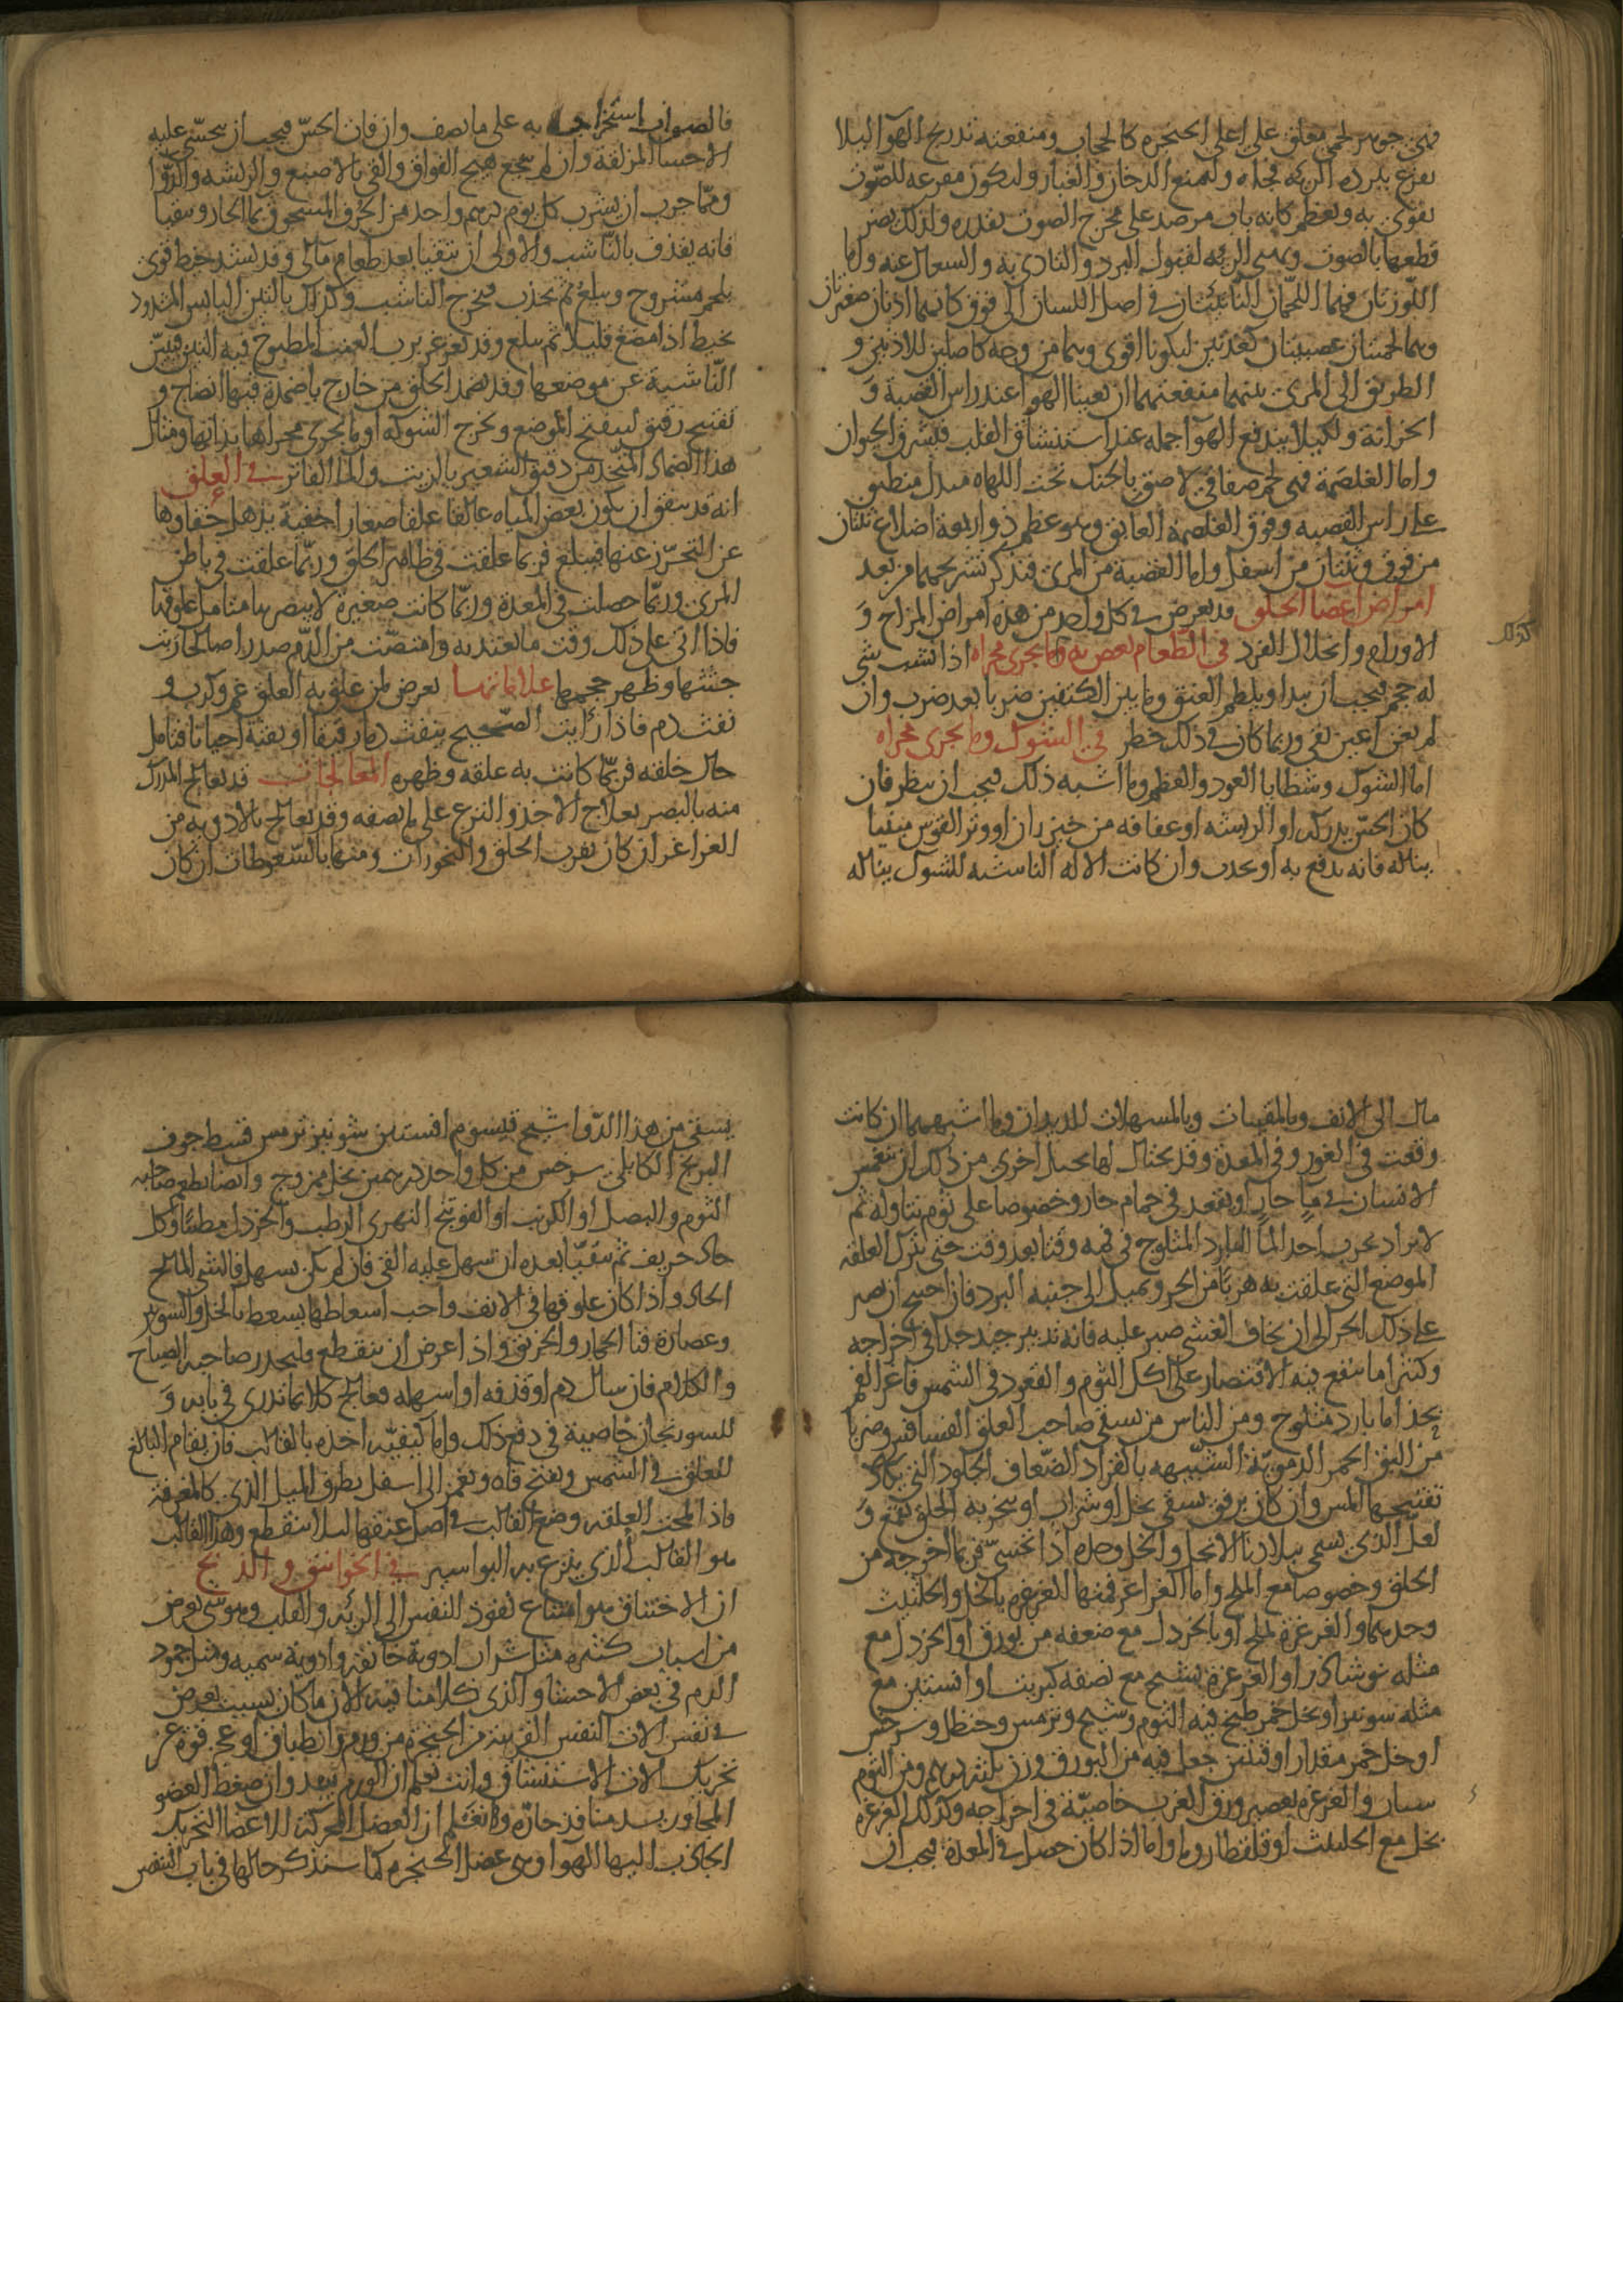 فهي جوهر لحمي معلق على اعلى الحنجرة كالحجاب ومنفعته تدريج الهوآ ليلا
يقرع ببرده الريه فجاه وليمنع الدخان والغبار وليكون مقرعه للصوت
يقوى به ويعظم كانه باب موصد على مخرج الصوت بقدره ولذلك يضر
قطعها بالصوت ويهيى الريه لقبول البرد والتاذى به والسعال عنه واما
اللوزتان فهما اللحمتان الناتئتان في اصل اللسان الى فوق كانهما اذنان صغيرتان
وهما لحمتان عصبيتان كغدتين ليكونا اقوى وهما من وجه كاصلين للاذنين و
الطريق الى المرى بينهما منفعتهما ان يعبيا الهوآ عند راس القصبة و
الخزانة ولكيلا يندفع الهوآ جمله عند استنشاق القلب فيشرق الحيوان
واما الغلصمة فهي لحم صفاقي لاصق بالحنك تحت اللهاه متدل منطبق
على راس القصبه وفوق الغلصمة الفايق وهو عظم ذو اربعة اضلاع ثنتان
من فوق وثنتان من اسفل واما القصبة من المرى فنذكر تشريحهما من بعد
امراض اعضا الحلق قد يعرض في كل واحد من هذه امراض المزاج و
الاورام وانحلال الفرد في الطعام يغص به وما يجرى مجراه اذا نشب شي
كذلك
له حجم فيجب ان يبدا ويلطم العنق وما بين الكتفين ضربا بعد ضرب وان
لم يغن اعين بقى وربما كان في ذلك خطر في الشوك وما يجرى مجراه
اما الشوك وشظايا العود والعظم وما اشبه ذلك فيجب ان ينظر فان
كان الحس يدركه او الريشه او عقافه من خيزران او وتر القوس مثنيا
يناله فانه يدفع به او يجذب وان كانت الاله الناشبه للشوك يناله
فالصواب استخراجه به على ما نصف وان فات الحس فيجب ان يتحسى عليه
الاحسا المزلقة وان لم ينجع هيج الفواق والقي بالاصبع والريشه والدوا
ومما جرب ان يشرب كل يوم درهم واحد من الحرف المسحوق بالما الحار ويتقيا
فانه يقذف بالناشب والاولى ان يتقيا بعد طعام مالى وقد يشد خيط قوى
بلحم مشروح ويبلع ثم يجذب فيخرج الناشب وكذلك بالتين اليابس المشدود
بخيط اذا مضغ قليلا ثم يبلع وقد يغرغر برب العنب المطبوخ فيه التين فيبين
الناشبة عن موضعها وقد يضمد الحلق من خارج باضمدة فيها انضاج و
تفتيح رفيق ليتفتح الموضع ويخرج الشوكه او ما يجرى مجراها بذاتها ومثال
هذا الضماد المتخذ من دقيق الشعير بالزيت والما الفاتر في العلق
انه قد يتفق ان يكون بعض المياه عالقا علقا صغارا خفية يذهل خفاوها
عن التحرز عنها فيبلع فربما علقت في ظاهر الحلق وربما علقت في باطن
المرى وربما حصلت في المعدة وربما كانت صغيرة لا يبصرها متامل علوقها
فاذا اتى على ذلك وقت ما يعتد به وامتصت من الدم صدرا صالحا ربت
جثتها وظهر حجمها علاماتها يعرض لمن علق به العلق غم وكرب و
نفث دم فاذا رايت الصحيح ينفث دما رقيقا او يقيه احيانا فتامل
حال حلقه فربما كانت به علقه وظهره المعالجات قد يعالج المدرك
منه بالبصر بعلاج الاخذ والنزع على ما نصفه وقد يعالج بالادويه من
الغراغر ان كان بقرب الحلق والبخورات ومنها بالسعوطات ان كان
مال الى الانف وبالمقيات وبالمسهلات للديدان وما اشبههما ان كانت
وقعت في الغور وفي المعدة وقد يحتال لها بحيل اخرى من ذلك ان ينغمس
الانسان في ما حار او يقعد في حمام حار وخصوصا على ثوم يتناوله ثم
لا يزاد يجرب اخذ الما البارد المثلوج في فمه وقتا بعد وقت حتى يترك العلقه
الموضع الذى علقت به هربا من الحر ويميل الى جنبه البرد فان احتيج ان يصبر
على ذلك الحر الى ان يخاف الغشى صبر عليه فانه تدبير جيد جدا في اخراجه
وكثيرا ما ينفع فيه الاقتصار على اكل الثوم والقعود في الشمس فاغرا الفم
بحذا ما بارد مثلوج ومن الناس من يسقى صاحب العلق الفسافس وضربا
من البق الحمر الدمويه الشبيهه بالقراد الضعاف الجلود التي يكاد
تفتيحها المس وان كان برفق يسقى بخل او شراب او يبخر به الحلق بقمع و
لعل الذى يسمى ببلادنا الانجل والخل وحده اذا تحسى فربما اخرجه من
الحلق وخصوصا مع الملح واما الغراغر فمنها الغرغرة بالخل والحلتيت
وحدهما والغرغرة بملح او بالخردل مع ضعفه من بورق او الخردل مع
مثله نوشادر او الغرغره بشيح مع نصفه كبريت او افسنتين مع
مثله شونيز او بخل خمر طبخ فيه الثوم وشيح وترمس وحنظل وسرخس
او خل خمر مقدار اوقيتين جعل فيه من البورق وزن ثلثه دراهم ومن الثوم
سنان والغرغره بعصير ورق الغرب خاصيّة في اخراجه وكذلك الغرغره
بخل مع الحلتيت او قلقطار وما واما اذا كان حصل في المعدة فيجب ان
يسقى من هذا الدوا شيح قيسوم افسنتين شونيز ترمس قسط جوف
البرنج الكابلى سرخس من كل واحد درهمين بخل ممزوج وايضا يطعم صاحبه
الثوم والبصل او الكرنب او الفوتنج النهرى الرطب والخردل مطيبا وكل
حاد حريف ثم يتقيا بعده ان سهل عليه القى فان لم يكن يسهل فالشى المالح
الحاد واذا كان علوقها في الانف واجب اسعاطها يسعط بالخل والشونيز
وعصارة قثا الحمار والخربق واذا عرض ان ينقطع فليحذر صاحبه الصياح
والكلام فان سال دم او قذفه او اسهله فعالج كلا بما تدرى في بابه و
للسورنجان خاصية في دفع ذلك واما كيفيه اخذه بالقالب فان يقام البالغ
للعلق في الشمس ويفتح فاه ويغمز الى اسفل بطرف الميل الذى كالمغرفه
فاذا لمحت العلقه وضع القالب في اصل عنقها ليلا ينقطع وهذا القالب
هو القالب الذى ينزع به البواسير في الخوانيق والذبح
ان الاختناق هو امتناع نفوذ النفس الى الريه والقلب وهو شى يعرض
من اسباب كثيره مثل شراب ادويه خانقه وادوية سميه ومثل جمود
الدم في بعض الاحشا والذى كلامنا فيه الان ما كان بسبب يعرض
في نفس الات التنفس القريبة من الحنجرة من ورم وانطباق او عجز قوة عن
تحريك الات الاستنشاق وانت تعلم ان الورم يسد وان ضغط العضو
المجاور يسد منافذ جاره وتعلم ان العضل المحركة للاعضا التحريك
الجاذب اليها الهوا وهى عضل الحنجره كما سنذكر حالها في باب التنفس